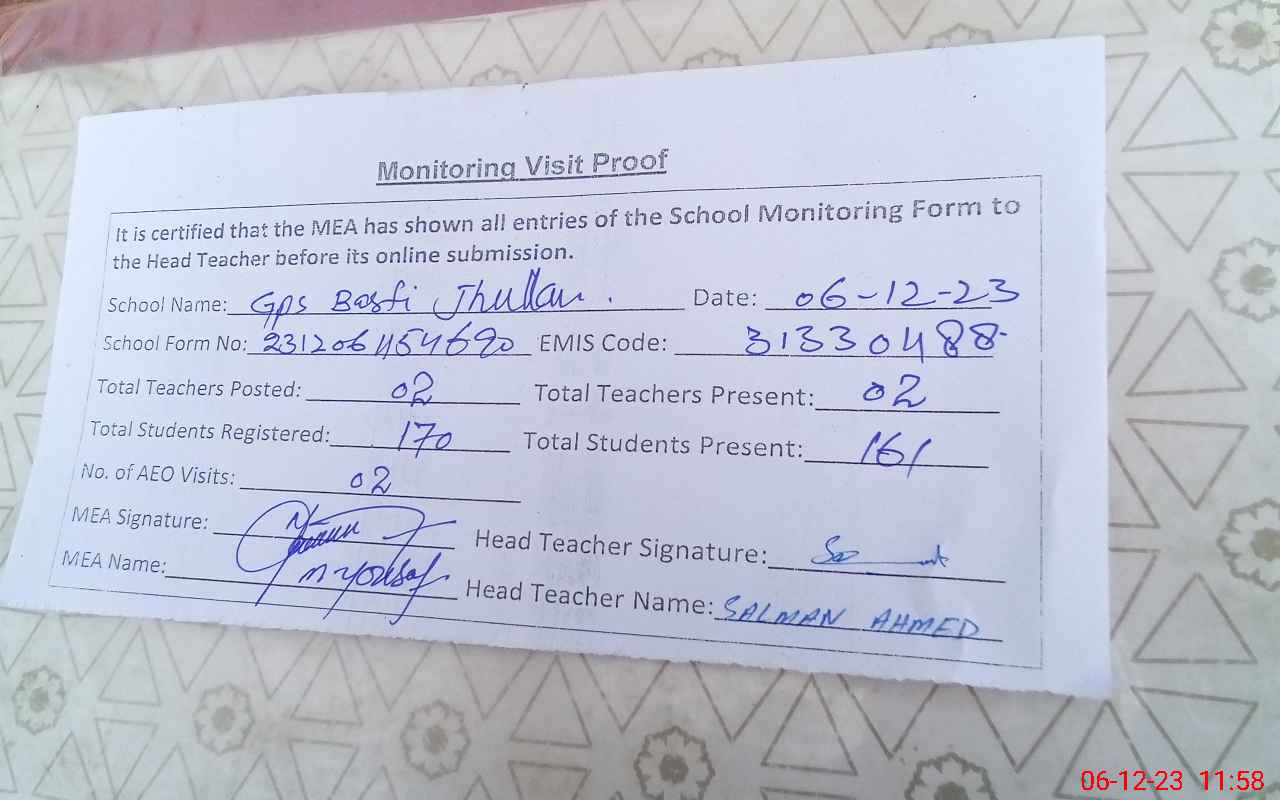 Monitoring Visit Proof
It is certified that the MEA has shown all entries of the School Monitoring Form to
the Head Teacher before its online submission.
School Name: GPS Basti Jhullan. Date: 06-12-23
School Form No: 231206454690 EMIS Code: 31330488
Total Teachers Posted: 02 Total Teachers Present: 02
Total Students Registered: 170 Total Students Present: 161
No. of AEO Visits: 02
MEA Signature: Head Teacher Signature:
MEA Name: M Yousaf Head Teacher Name: SALMAN AHMED
06-12-23 11:58